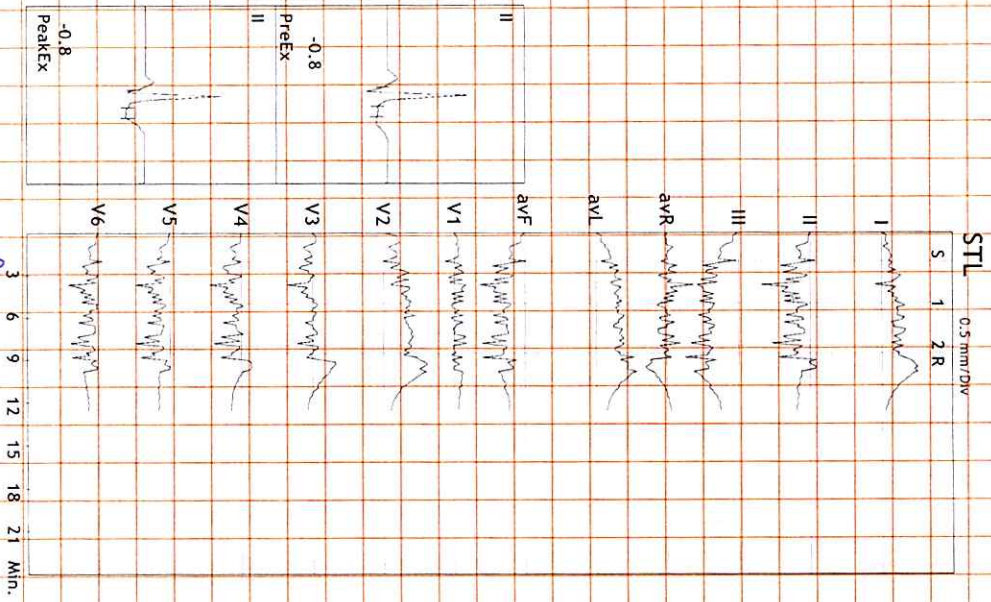 STL 0.5 mm/Div
S 1 2 R
I
II
III
avR
avL
avF
V1
V2
V3
V4
V5
V6
3 6 9 12 15 18 21 Min.
II
-0.8
PreEx
II
-0.8
PeakEx